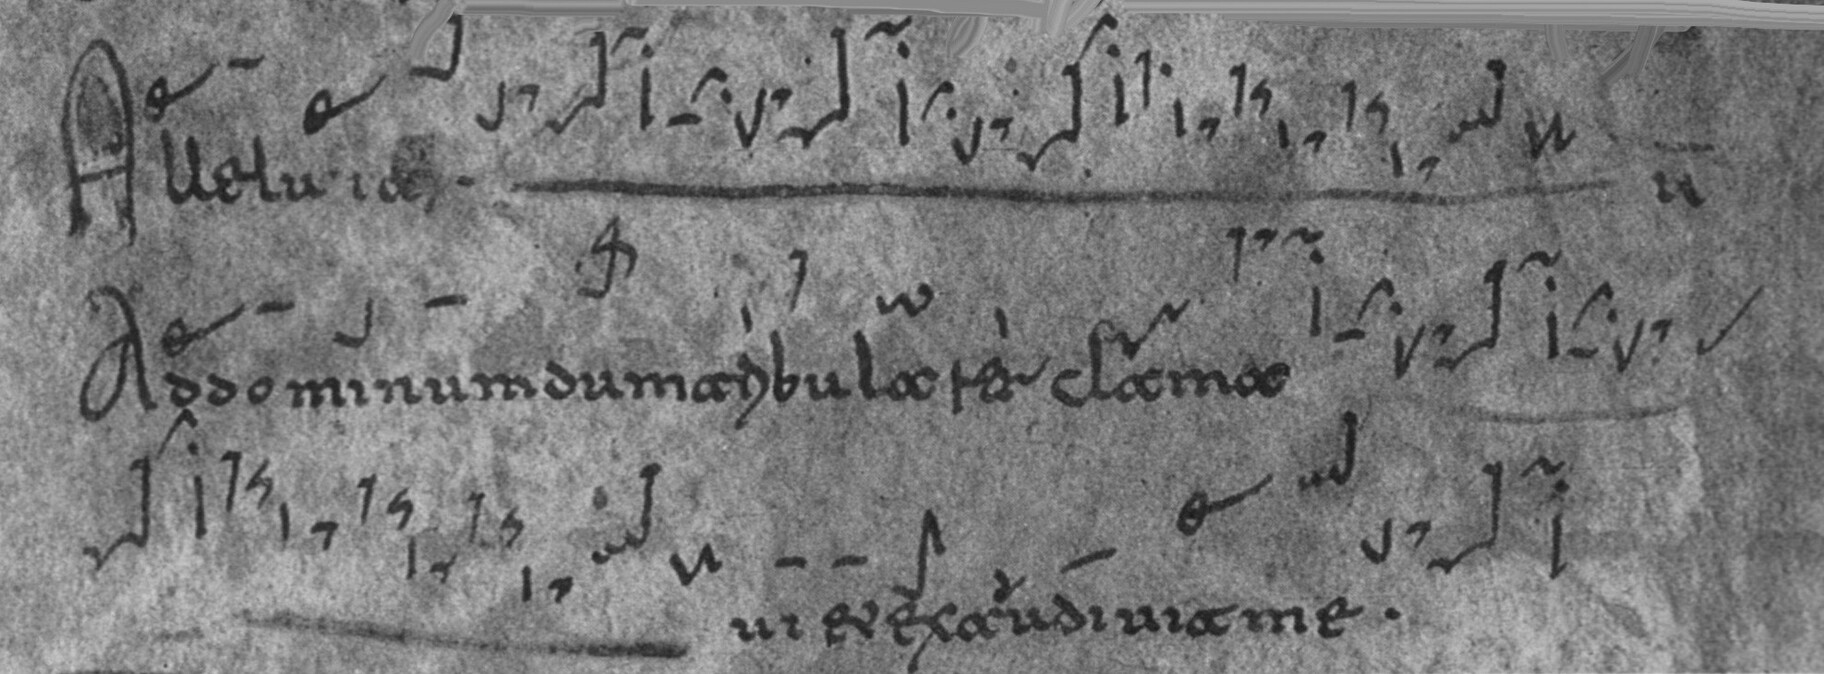 Alleluia ū
Ad dominum dum tribularer clama
ui et exaudiuit me.